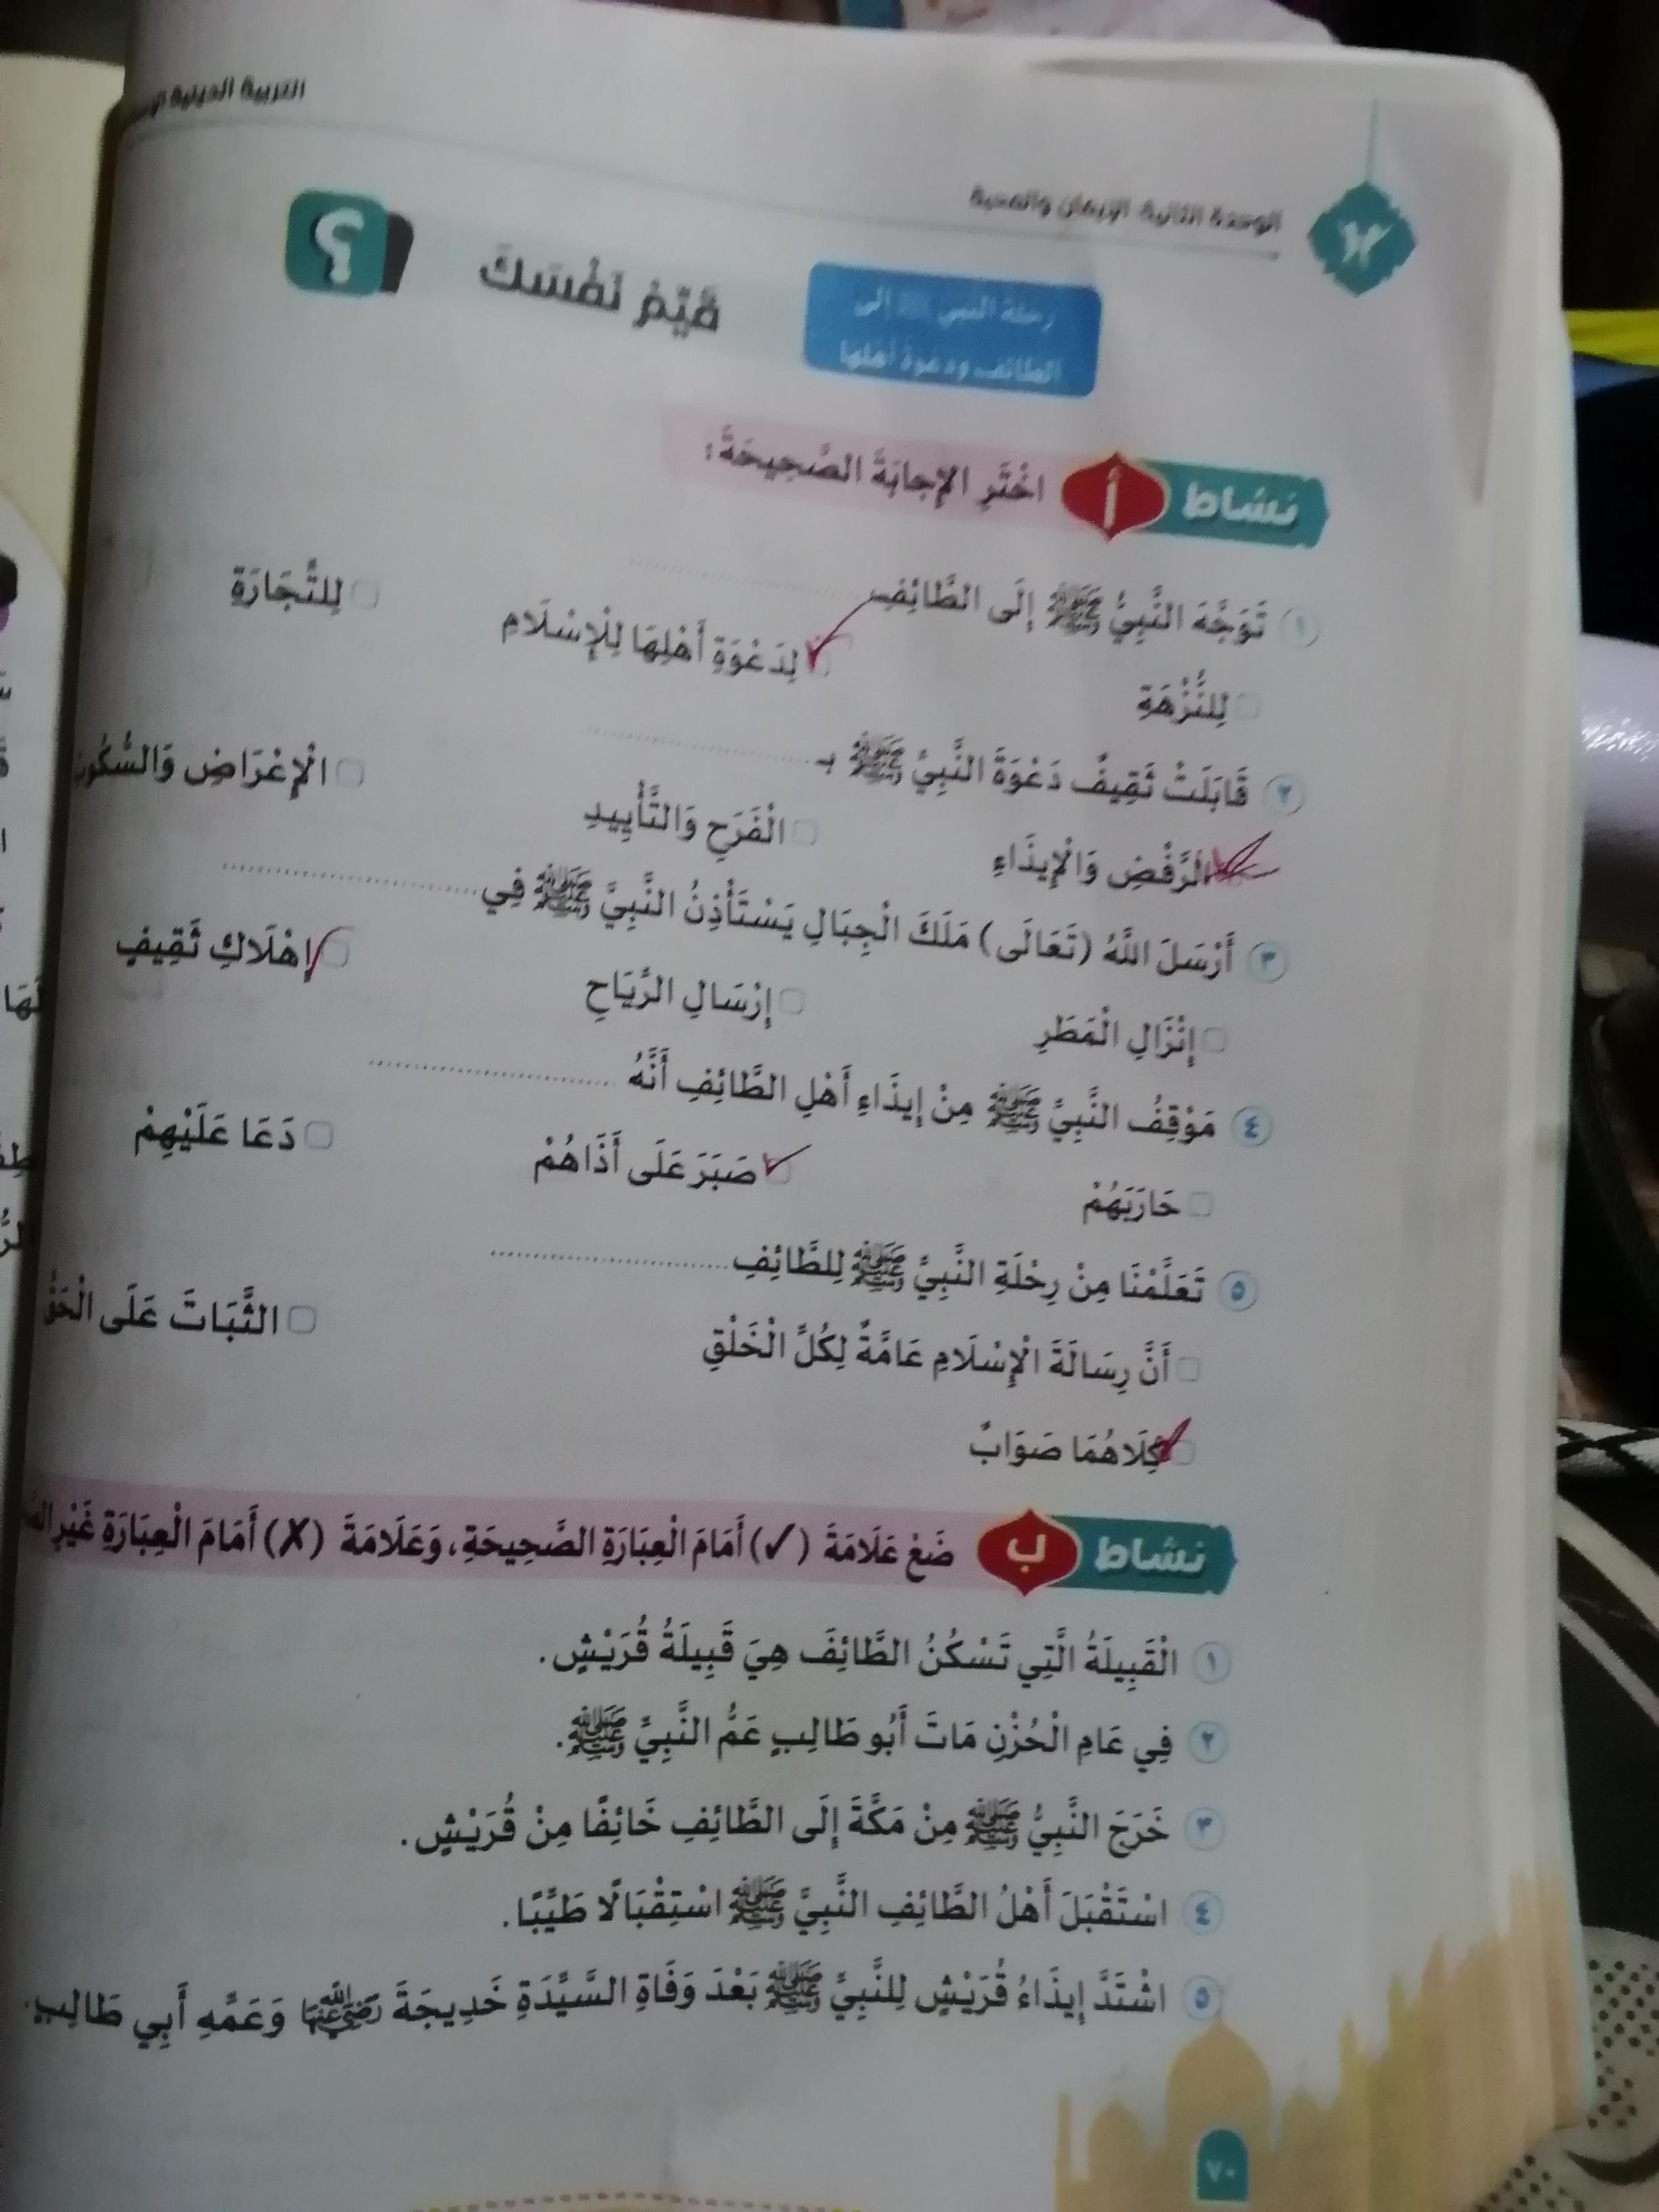 التربية الدينية
الوحدة الثانية: الإيمان والمحبة
رحلة النبي ﷺ إلى
الطائف ودعوة أهلها
قَيِّمْ نَفْسَكَ
؟
نشاط أ اخْتَرِ الإجابَةَ الصَّحِيحَةَ:
١ تَوَجَّهَ النَّبِيُّ ﷺ إِلَى الطَّائِفِ ..........
لِلنُّزْهَةِ لِدَعْوَةِ أَهْلِهَا لِلْإِسْلَامِ لِلتِّجَارَةِ
٢ قَابَلَتْ ثَقِيفٌ دَعْوَةَ النَّبِيِّ ﷺ بِـ ..........
الرَّفْضِ وَالْإِيذَاءِ الْفَرَحِ وَالتَّأْيِيدِ الْإِعْرَاضِ وَالسُّكُوتِ
٣ أَرْسَلَ اللَّهُ (تَعَالَى) مَلَكَ الْجِبَالِ يَسْتَأْذِنُ النَّبِيَّ ﷺ فِي ..........
إِنْزَالِ الْمَطَرِ إِرْسَالِ الرِّيَاحِ إِهْلَاكِ ثَقِيفٍ
٤ مَوْقِفُ النَّبِيِّ ﷺ مِنْ إِيذَاءِ أَهْلِ الطَّائِفِ أَنَّهُ ..........
حَارَبَهُمْ صَبَرَ عَلَى أَذَاهُمْ دَعَا عَلَيْهِمْ
٥ تَعَلَّمْنَا مِنْ رِحْلَةِ النَّبِيِّ ﷺ لِلطَّائِفِ ..........
أَنَّ رِسَالَةَ الْإِسْلَامِ عَامَّةٌ لِكُلِّ الْخَلْقِ الثَّبَاتَ عَلَى الْحَقِّ
كِلَاهُمَا صَوَابٌ
نشاط ب ضَعْ عَلَامَةَ (✓) أَمَامَ الْعِبَارَةِ الصَّحِيحَةِ، وَعَلَامَةَ (✗) أَمَامَ الْعِبَارَةِ غَيْرِ
١ الْقَبِيلَةُ الَّتِي تَسْكُنُ الطَّائِفَ هِيَ قَبِيلَةُ قُرَيْشٍ.
٢ فِي عَامِ الْحُزْنِ مَاتَ أَبُو طَالِبٍ عَمُّ النَّبِيِّ ﷺ.
٣ خَرَجَ النَّبِيُّ ﷺ مِنْ مَكَّةَ إِلَى الطَّائِفِ خَائِفًا مِنْ قُرَيْشٍ.
٤ اسْتَقْبَلَ أَهْلُ الطَّائِفِ النَّبِيَّ ﷺ اسْتِقْبَالًا طَيِّبًا.
٥ اشْتَدَّ إِيذَاءُ قُرَيْشٍ لِلنَّبِيِّ ﷺ بَعْدَ وَفَاةِ السَّيِّدَةِ خَدِيجَةَ رَضِيَ اللَّهُ عَنْهَا وَعَمِّهِ أَبِي طَالِبٍ.
٧٠